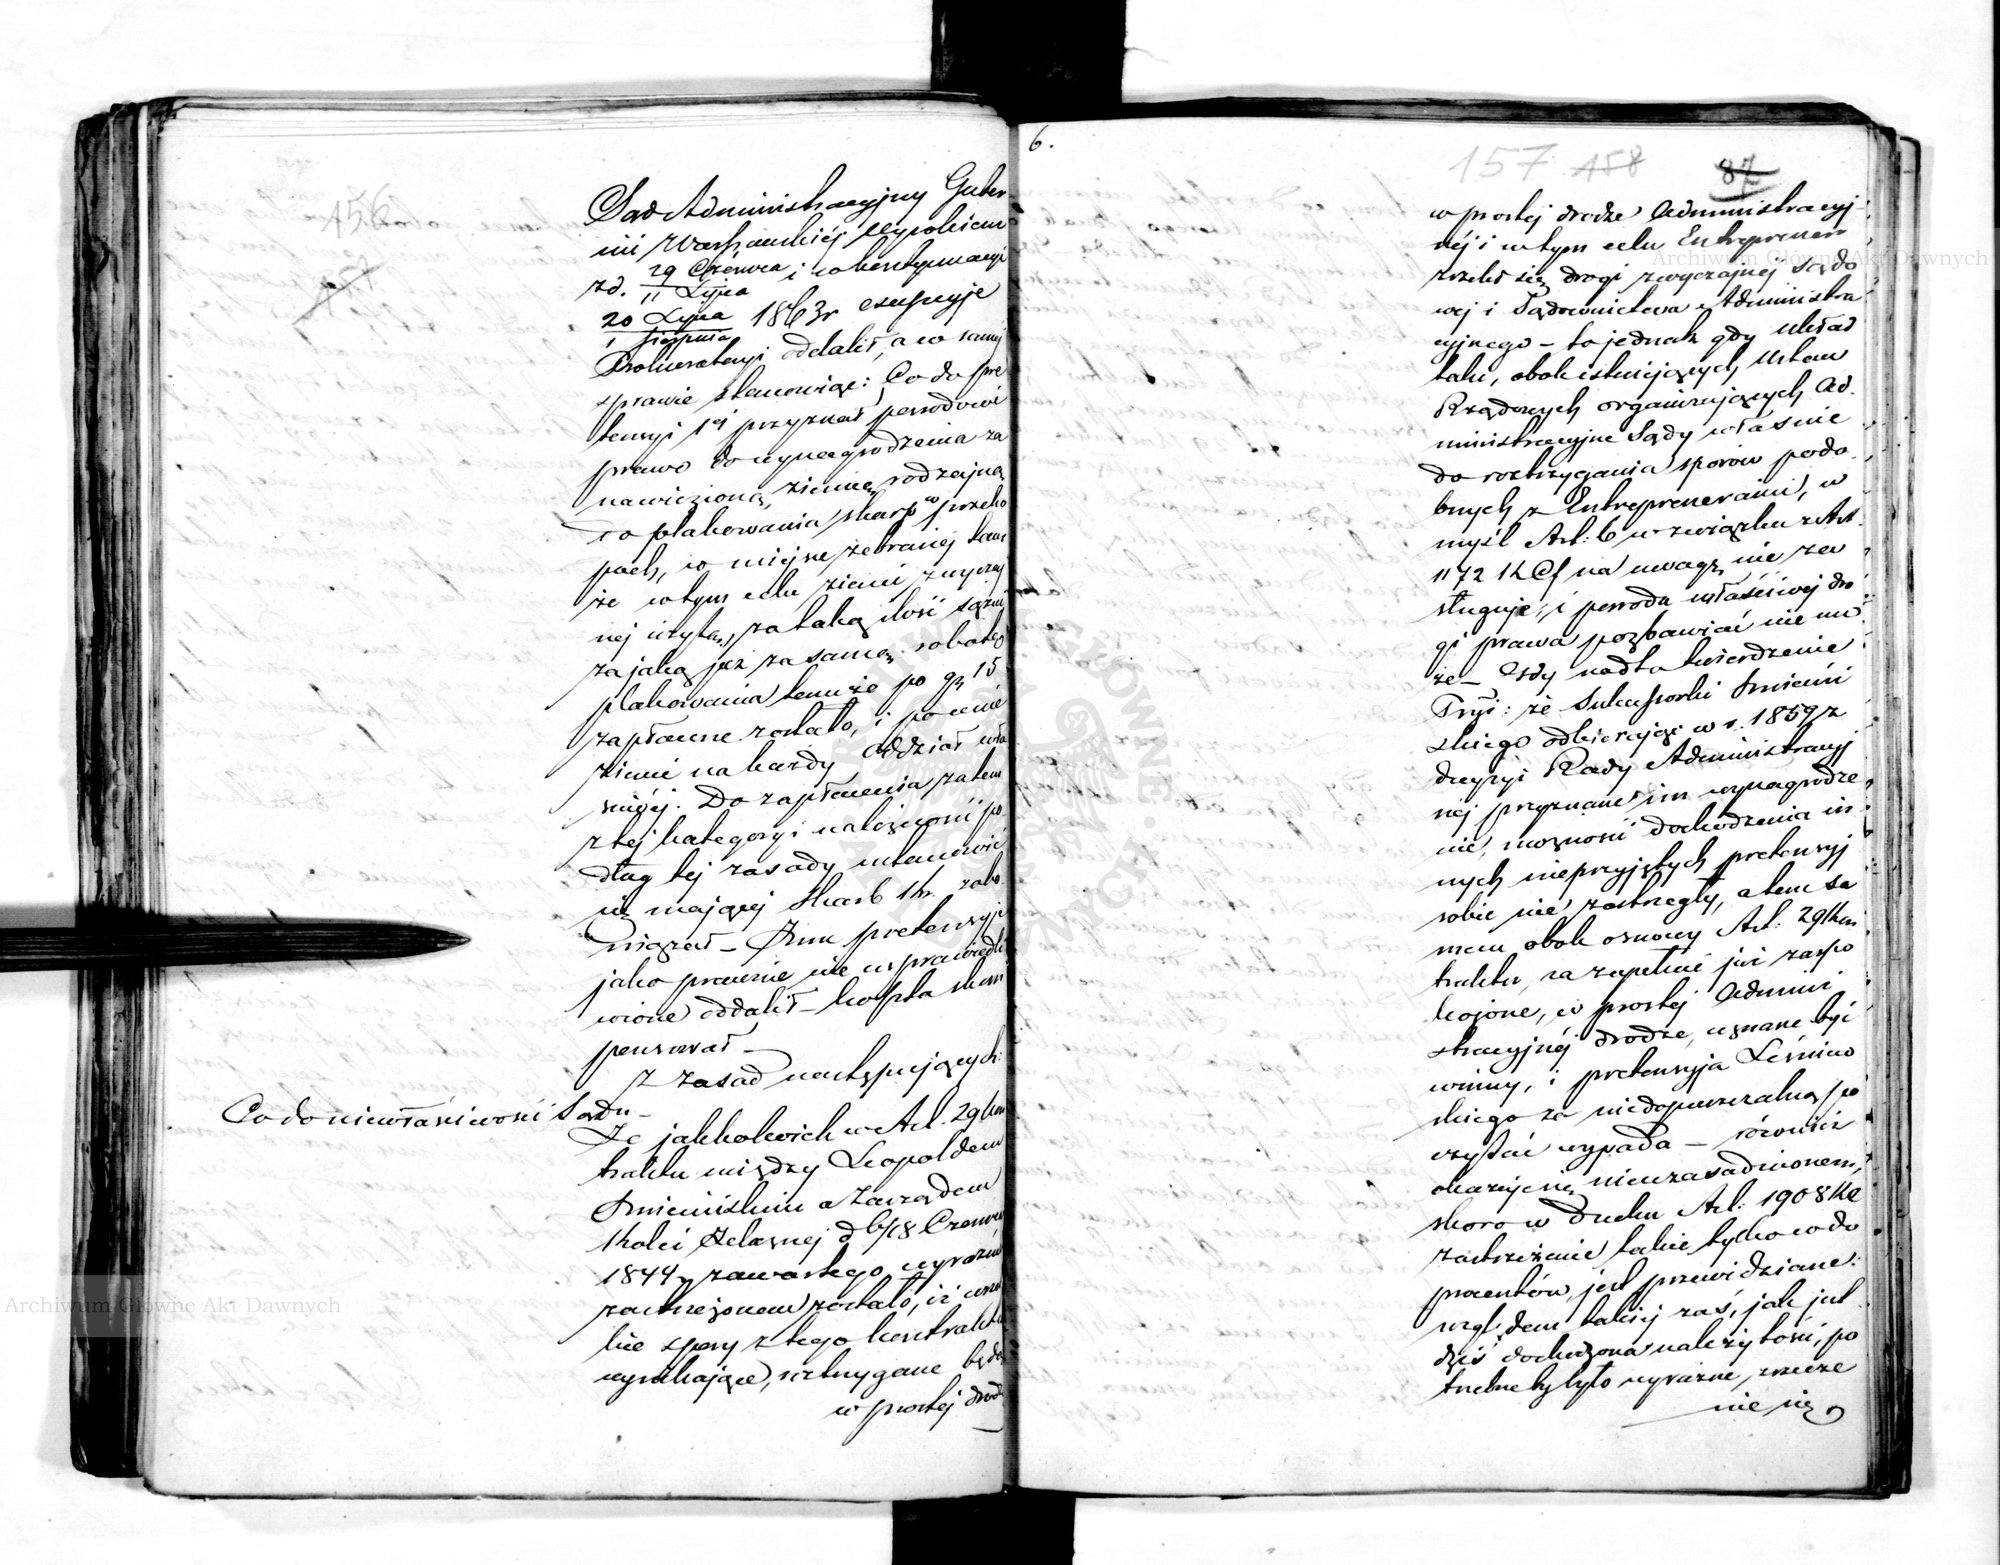 156
157
Sąd Administracyjny Guber
nii Warszawskiéj Wyrokiem
z d. 29 Czerwca / 11 Lipca i w kontynuacyi
20 Lipca / 1 Sierpnia 1863 r excepcyje
Prokuratoryi oddalił, a w samej
sprawie stanowiąc: Co do pre
tensyi jej przyznał powodowi
prawo do wynagrodzenia za
nawiezioną ziemię rodzajną
do plakowania skarp w przeko
pach, w miejsce zebranej
że w tym celu ziemi zwyczaj
nej użytą, za taką ilość sążni
za jaką już za samą robotę
plakowania temuże po gr 15
zapłacone zostało, i po cenie
ziemi na każdy Oddział wła
ściwéj. Do zapłacenia zatem
z tej kategoryi należności po
dług tej zasady ustanowić
się mającej Skarb Kr. zobo
wiązał – Inne pretensyje
jako prawnie nie usprawiedli
wione oddalił – koszta skom
pensował –
Z zasad następujących:
Co do niewłaściwości Sądu –
Że jakkolwiek w Art. 29 kon
traktu między Leopoldem
Śmiecińskim a Zarządem
Kolei Żelaznej d 6/18 Czerwca
1844 r zawartego wyraźnie
zastrzeżonem zostało, iż wszel
kie spory z tego kontraktu
wynikające, roztrzygane będą
w prostej drodze
6.
157 158 87
w prostej drodze Administracyj
néj i w tym celu Entreprener
zrzekł się drogi zwyczajnej Sądo
wej i Sądownictwa Administra
cyjnego – to jednak gdy układ
taki, obok istniejących Ustaw
Rządowych organizujących Ad
ministracyjne Sądy właśnie
do roztrzygania sporów podo
bnych z Entreprenerami, w
myśl Art: 6 w związku z Art
1172 KCf na uwagę nie za
sługuje, i powoda właściwej dro
gi prawa pozbawiać nie mo
że – Gdy nadto twierdzenie
że Sukcessorki
skiego odbierając w r. 1859 z
decyzyi Rady Administracyj
nej przyznane im wynagrodze
nie, możności dochodzenia in
nych nieprzyjętych pretensyj
sobie nie zastrzegły, a tem sa
mem obok osnowy Art: 29 kon
traktu, za zupełnie już zaspo
kojone, w prostej Admini
stracyjnéj drodze, uznane być
winny, i pretensyja
skiego za niedopuszczalną po
czytać wypada – również
okazuje się nieuzasadnionem,
skoro w duchu Art: 1908 KC
zastrzeżenie takie tylko co do
procentów jest przewidziane:
względem takiej zaś, jak jest
dziś dochodzona należytość, po
trzebne by było wyraźne, zrzecze
nie się